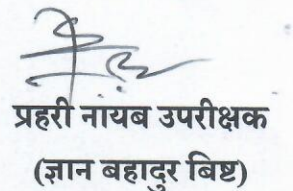 प्रहरी नायब उपरीक्षक
(ज्ञान बहादुर बिष्ट)